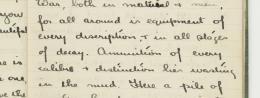 you
War, both in material & men,
for all around is equipment of
every description & in all stages
of decay. Ammunition of every
calibre & destination lies wasting
in the mud. Here a pile of